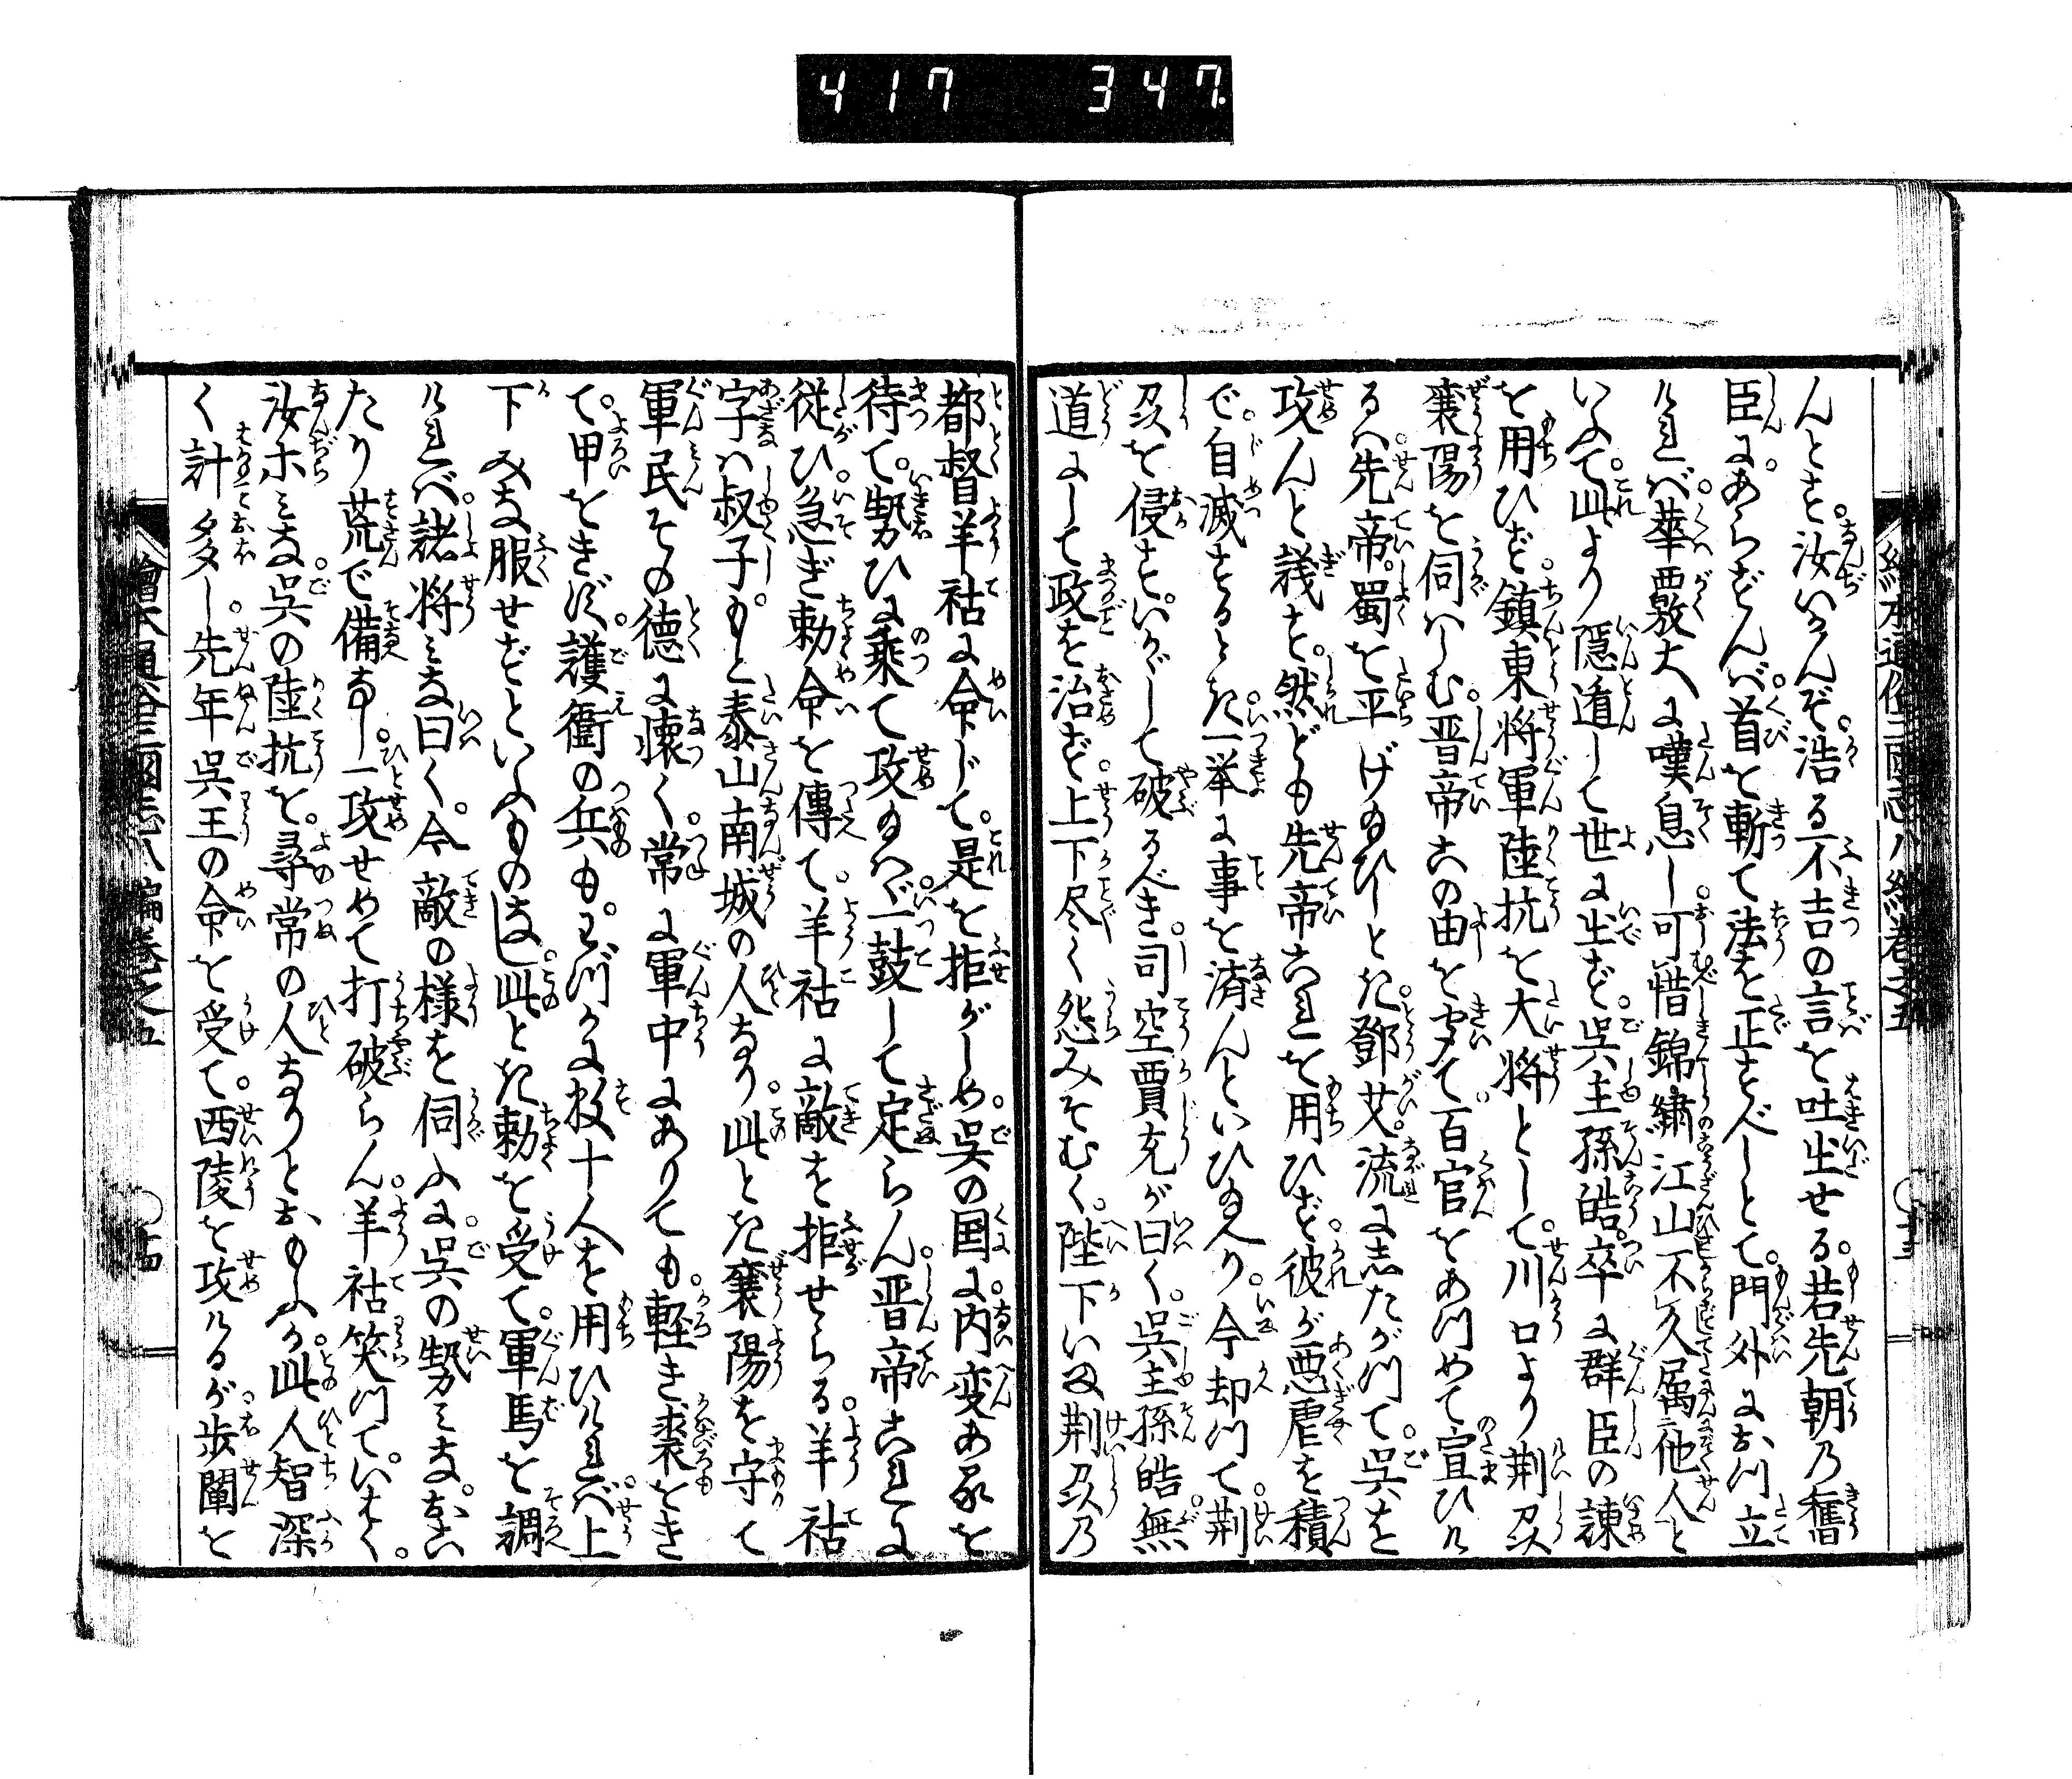 417 347.
んとす。汝いかんぞ。浩る不吉の言を吐出せる。若先朝乃舊
臣にあらずんバ。首を斬て法を正すべしとて。門外におつ立
れバ。華覈大に嘆息し。可惜錦繍江山不久属他人と
いふて。此より隠遁して世に出ず。呉主孫皓。卒に群臣の諌
を用ひず。鎮東将軍陸抗を大将として。川口より荊州
襄陽を伺ハしむ。晋帝この由を聞て。百官をあつめて宣ひけ
るハ。先帝。蜀を平げ給ひしとき。鄧艾。流にしたがつて。呉を
攻んと議す。然ども先帝これを用ひず。彼が悪虐を積
で。自滅するとき。一挙に事を済んといひ給へり。今却つて。荊
州を侵す。いかゞして破るべき。司空賈充が曰く。呉主孫皓。無
道にして政を治ず。上下尽く怨みそむく。陛下いま荊州乃
都督羊祜に命じて。是を拒がしめ。呉の国に。内変あるを
待て。勢ひに乗て攻給ハゞ。一鼓して定らん。晋帝これに
従ひ。急ぎ勅命を傳て。羊祜に敵を拒せらる。羊祜
字ハ叔子。もと泰山南城の人なり。此とき襄陽を守て
軍民その徳に懐く。常に軍中にありても。軽き裘をき
て。甲をきず。護衛の兵も。わづかに数十人を用ひけれバ。上
下みな服せずといふものなし。此とき勅を受て。軍馬を調
けれバ。諸将みな曰く。今敵の様を伺ふに。呉の勢みな。おい
たり荒で備なし。一攻せめて打破らん。羊祜笑つて。いはく。
汝ホみな。呉の陸抗を。尋常の人なりとおもふか。此人智深
く計多し。先年呉王の命を受て。西陵を攻けるが。歩闡を
繪本通俗三國志八編巻之五